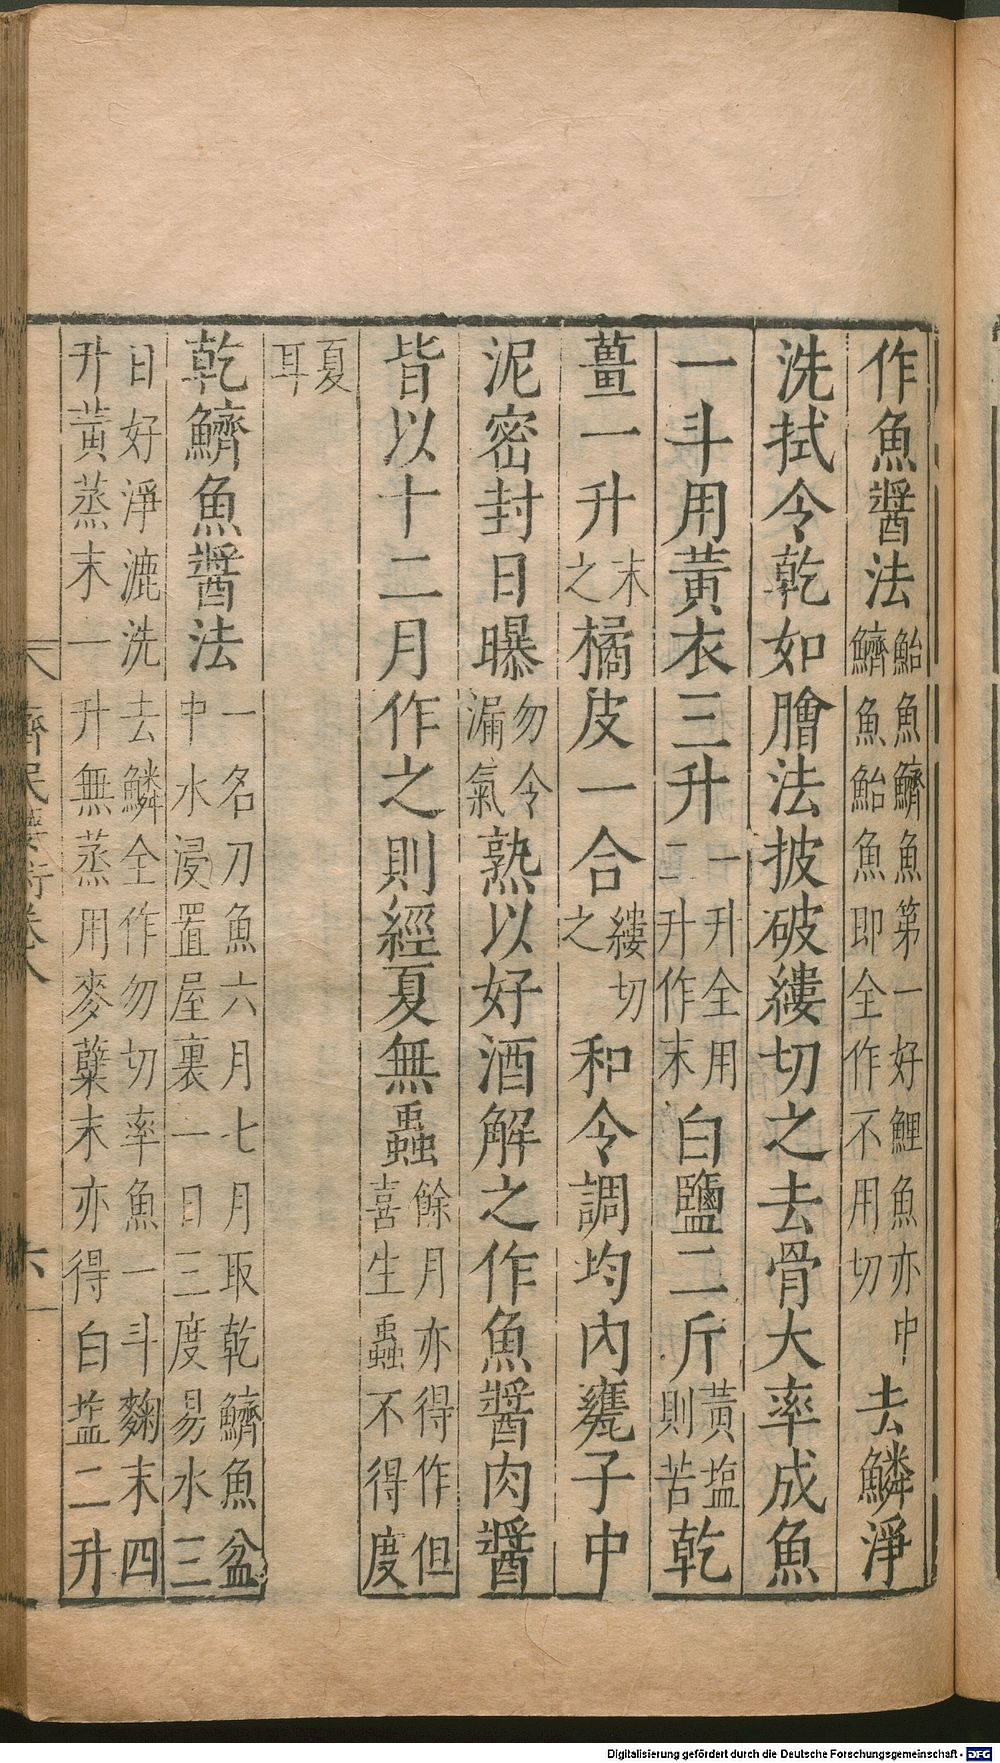 作魚醬法鮐魚鱭魚第一好鯉魚亦中鱭魚鮐魚即全作不用切去鱗淨
洗拭令乾如膾法披破縷切之去骨大率成魚
一斗用黃衣三升一升全用二升作末白鹽二斤黃塩則苦乾
薑一升末之橘皮一合縷切之和令調均內甕子中
泥密封日曝勿令漏氣熟以好酒解之作魚醬肉醬
皆以十二月作之則經夏無蟲餘月亦得作但喜生蟲不得度
夏耳
乾鱭魚醬法一名刀魚六月七月取乾鱭魚盆中水浸置屋裏一日三度易水三
日好淨漉洗去鱗全作勿切率魚一斗麴末四升黃蒸末一升無蒸用麥糵末亦得白塩二升
齊民要術卷八
六
Digitalisierung gefördert durch die Deutsche Forschungsgemeinschaft - DFG